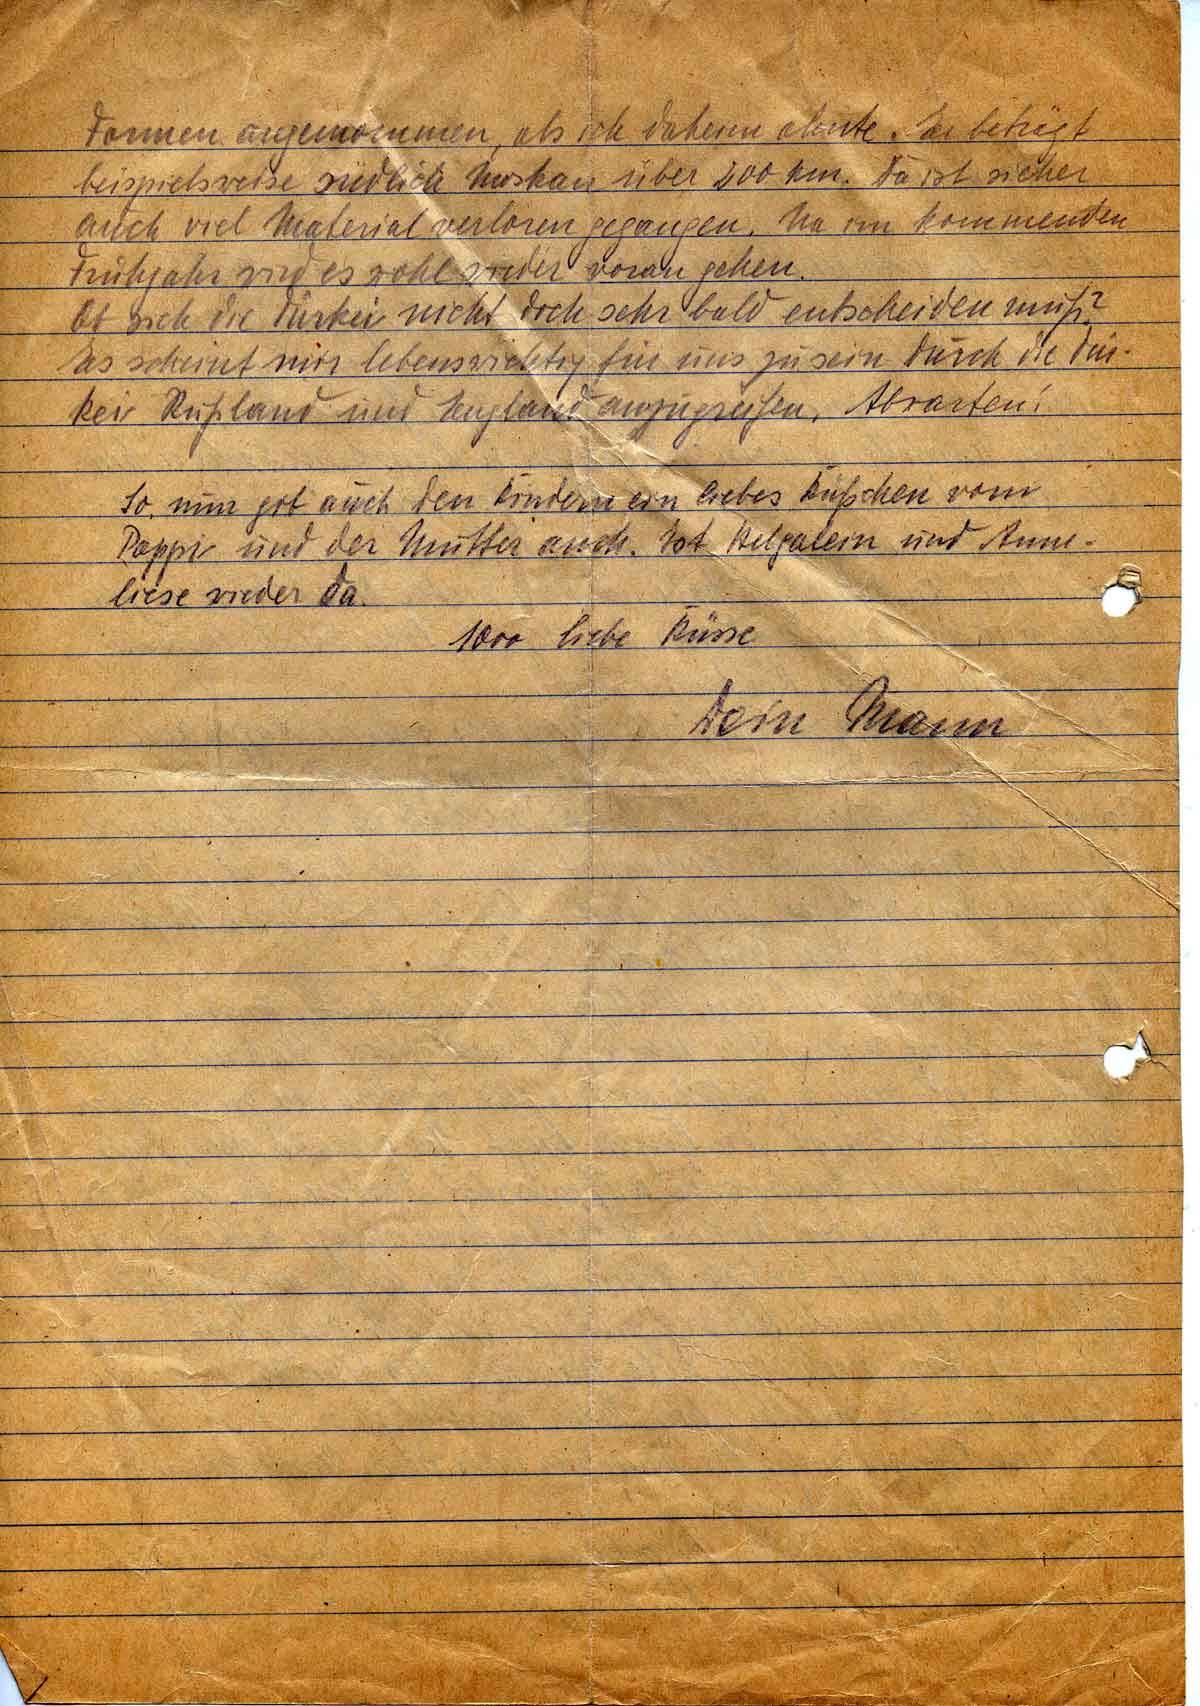 Formen angenommen, als ich daheim ahnte. Er beträgt
beispielsweise südlich Moskau über 200 km. Da ist sicher
auch viel Material verloren gegangen. Na im kommenden
Frühjahr wird es wohl wieder voran gehen.
Ob sich die Türkei nicht doch sehr bald entscheiden muß?
Es scheint mir lebenswichtig für uns zu sein durch die Tür-
kei Rußland und England anzugreifen. Abwarten!
So, nun gib auch den Kindern ein liebes Küßchen vom
Pappi und der Mutter auch. Ist Helgalein und Anne-
liese wieder da.
1000 liebe Küsse
Dein Mann